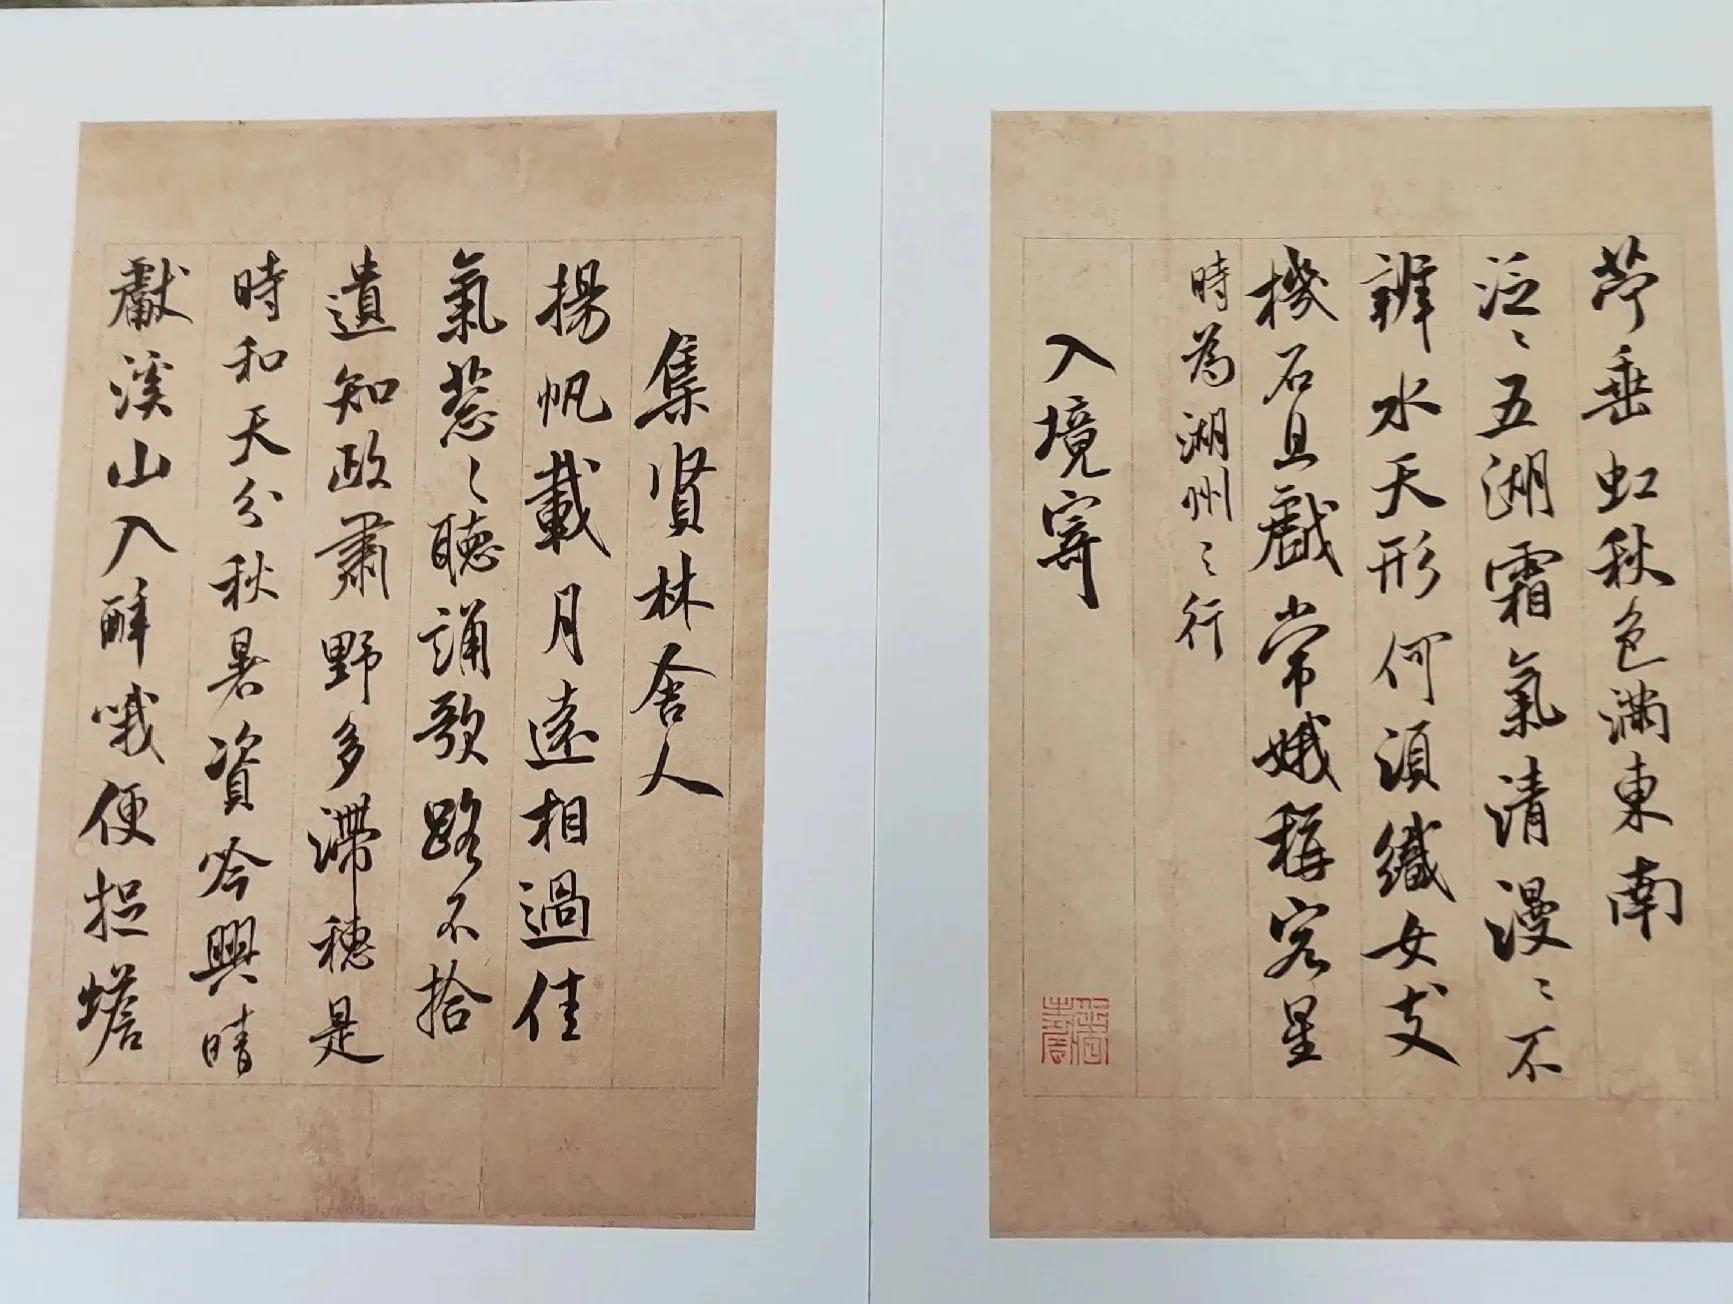 苧垂虹秋色滿東南
泛〻五湖霜氣清漫〻不
辨水天形何須織女支
機石且戲常娥稱客星
時為湖州之行
入境寄
集賢林舍人
揚帆載月遠相過佳
氣葱〻聽誦歌路不拾
遺知政肅野多滯穗是
時和天分秋暑資吟興晴
獻溪山入醉哦便捉蟾